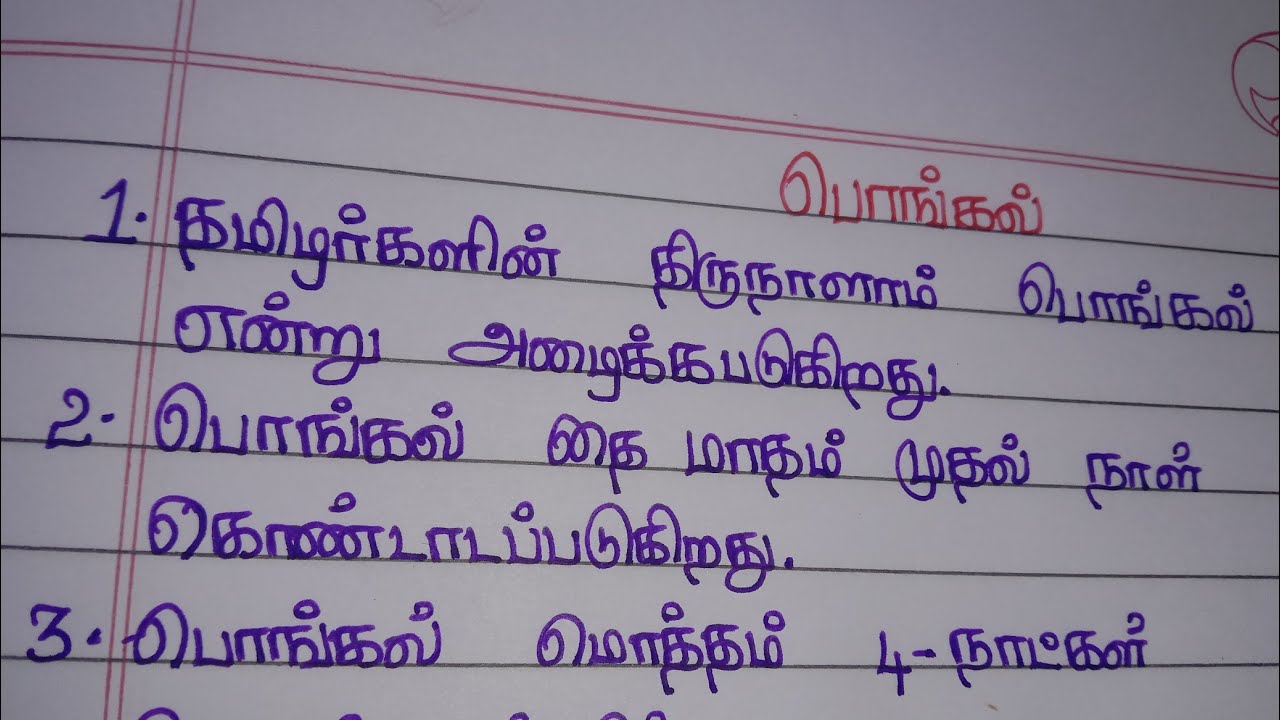 பொங்கல்
1. தமிழர்களின் திருநாளாம் பொங்கல்
என்று அழைக்கபடுகிறது.
2. பொங்கல் தை மாதம் முதல் நாள்
கொண்டாடப்படுகிறது.
3. பொங்கல் மொத்தம் 4-நாட்கள்